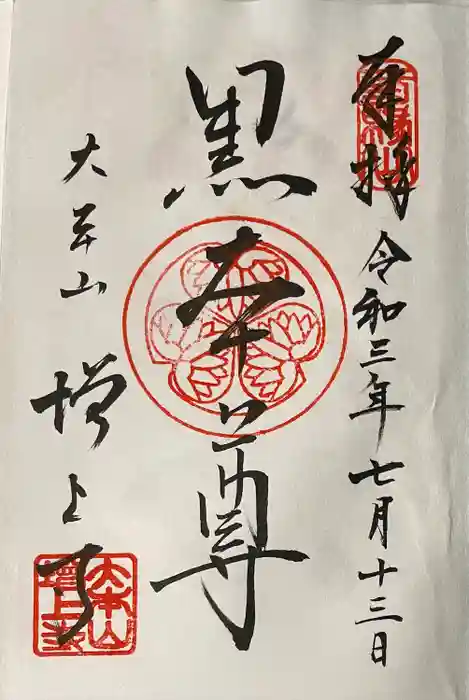 奉拝
令和三年七月十三日
黒本尊
大本山
増上寺
大本山
増上寺